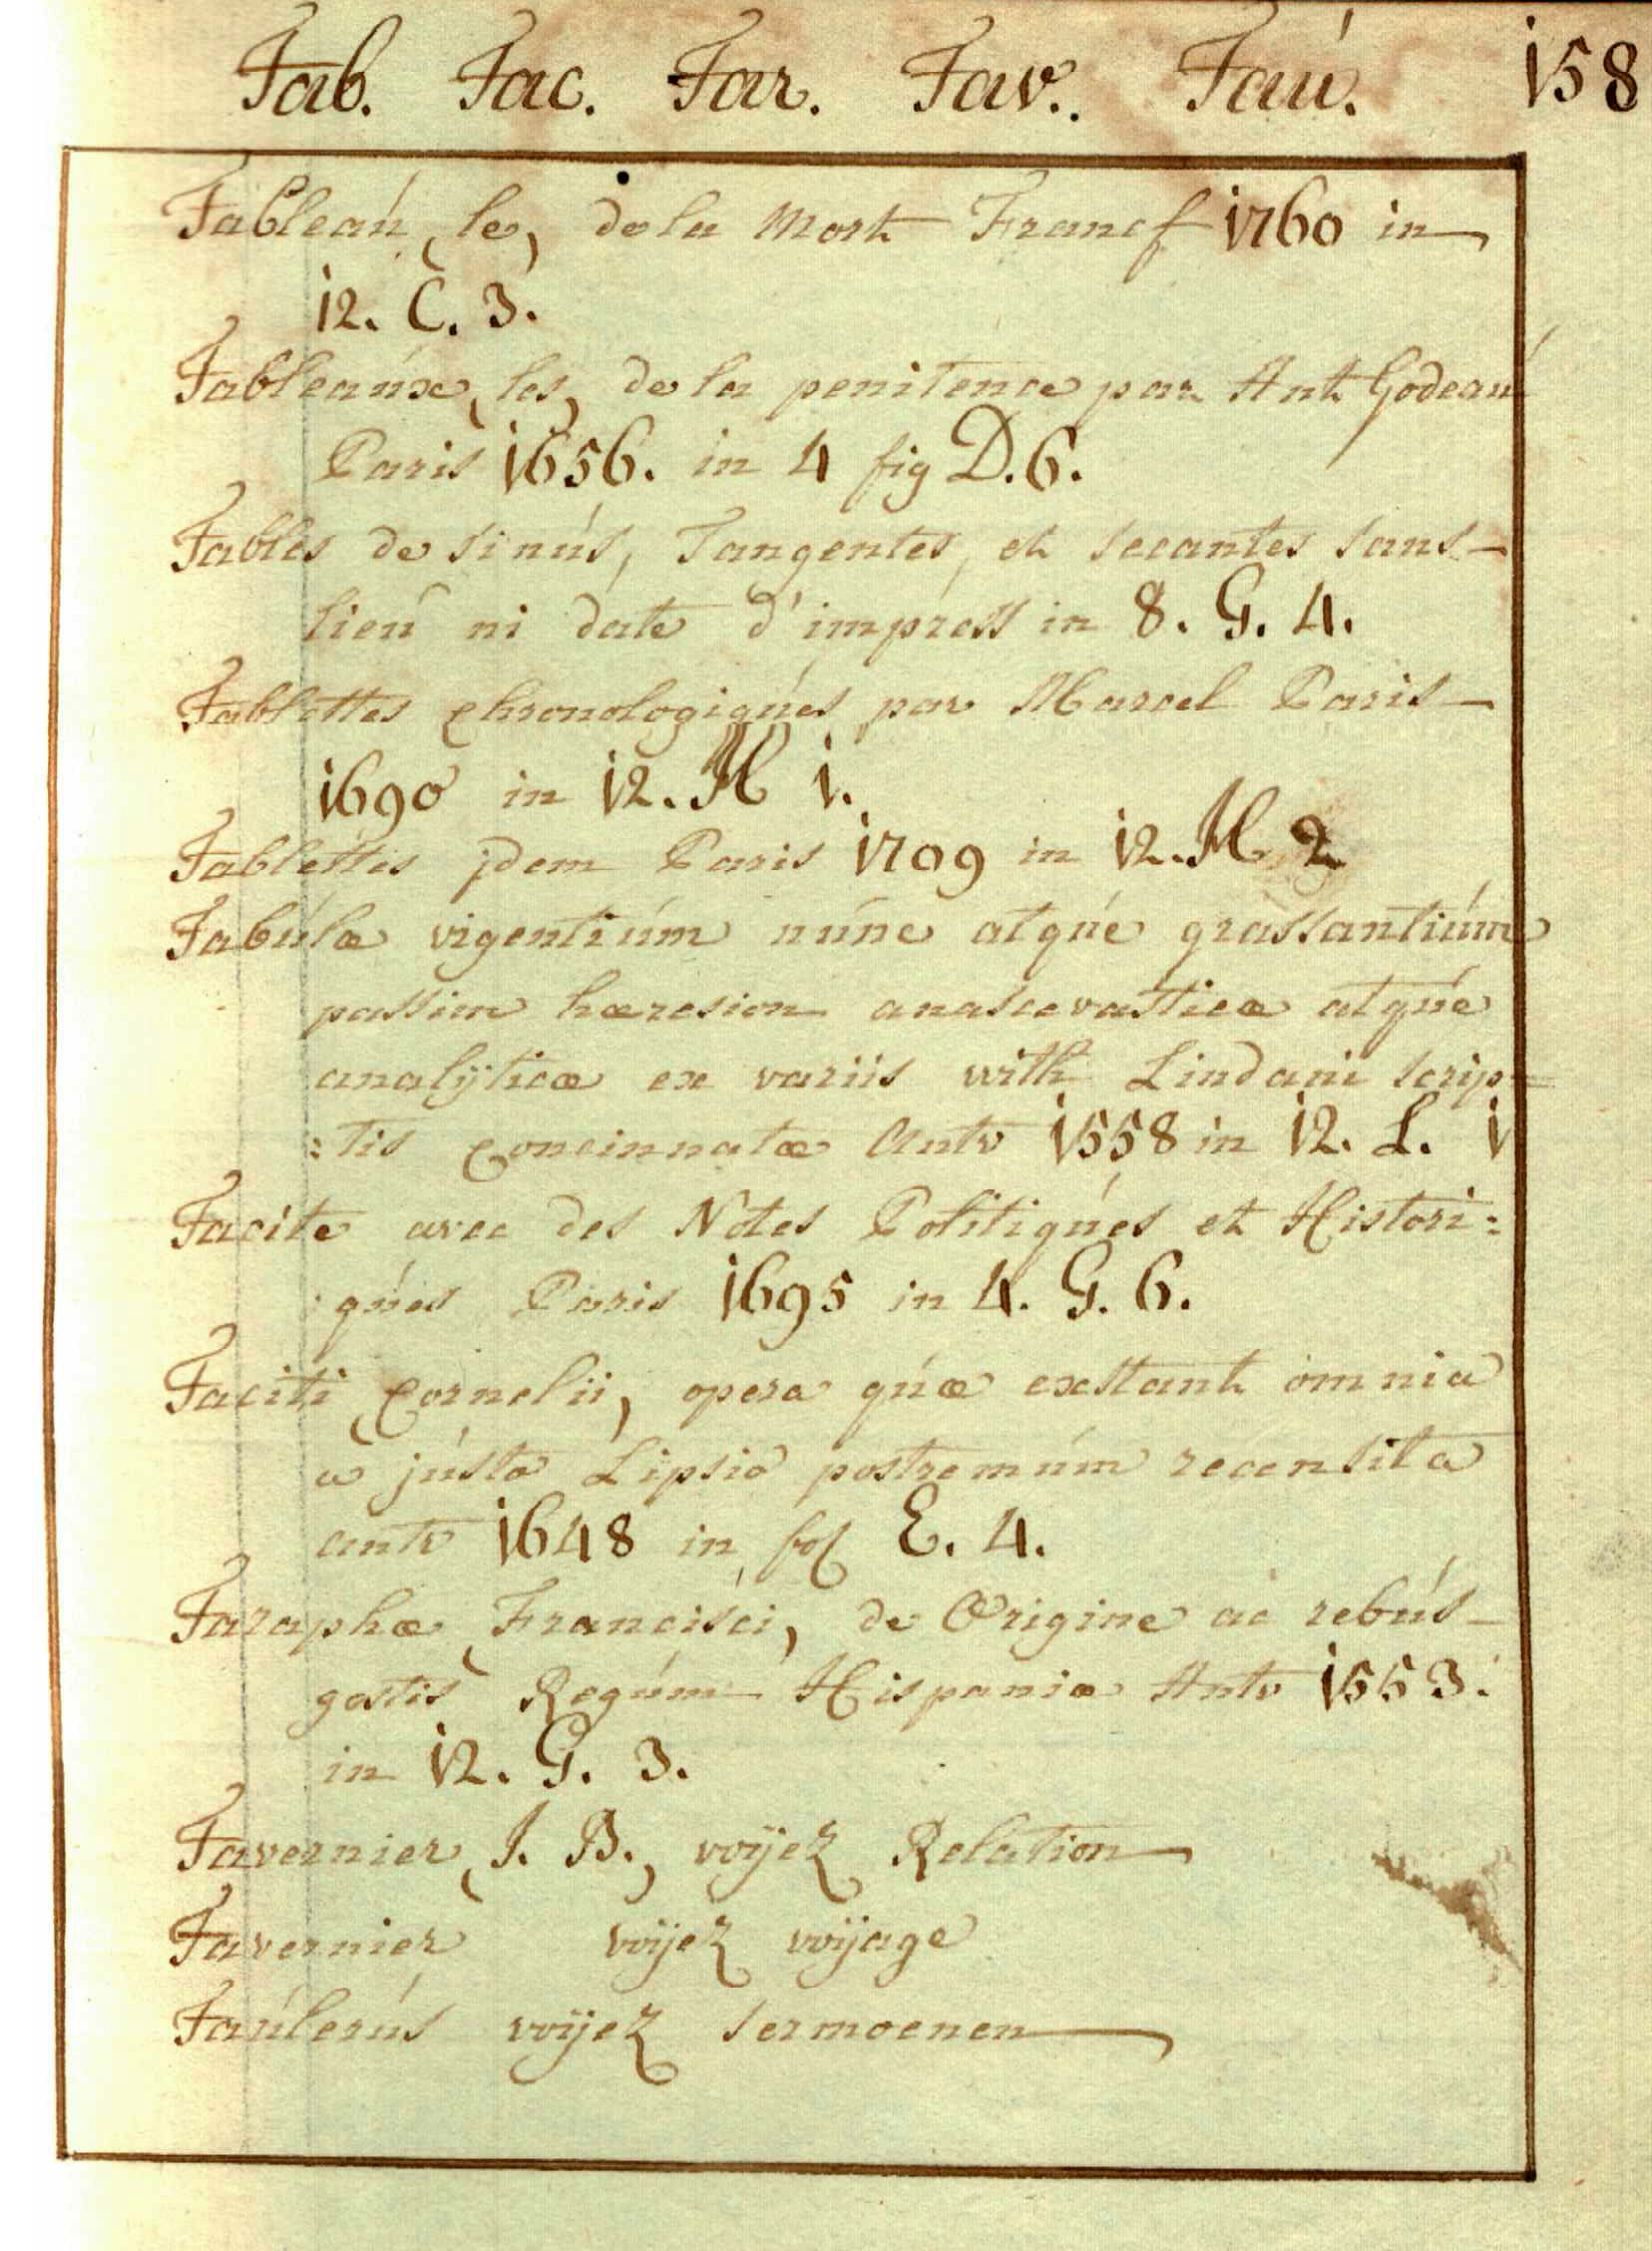 Tab. Tac. Tar. Tav. Taú. 158
Tableaú, le, de la Mort Francf 1760 in
12. C. 3.
Tableaúx, les, de la penitence par Ant Godeaú
Paris 1656. in 4 fig D. 6.
Tables de sinús, Tangentes, et secantes sans
lieú ni date d'impress in 8. G. 4.
Tablettes chronologiqúes par Marcel Paris
1690 in 12. M 1.
Tablettes jdem Paris 1709 in 12. M 2
Tabúlæ vigentiúm núnc atqúe grassantiúm
passim hæresion anascevasticæ atqúe
analÿticæ ex variis with Lindani scrip=
:tis concinnatæ Antv 1558 in 12. L. 1
Tacite avec des Notes Politiqúes et Histori:
:qúes Paris 1695 in 4. G. 6.
Taciti, Cornelii, opera qúæ exstant omnia
a jústo Lipsio postremúm recensita
antv 1648 in fol E. 4.
Taraphæ, Francisci, de Origine ac rebús
gestis Regúm Hispaniæ Antv 1553.
in 12. G. 3.
Tavernier, J. B., voÿez Relation
Tavernier voÿez voÿage
Taúlerús voÿez sermoenen